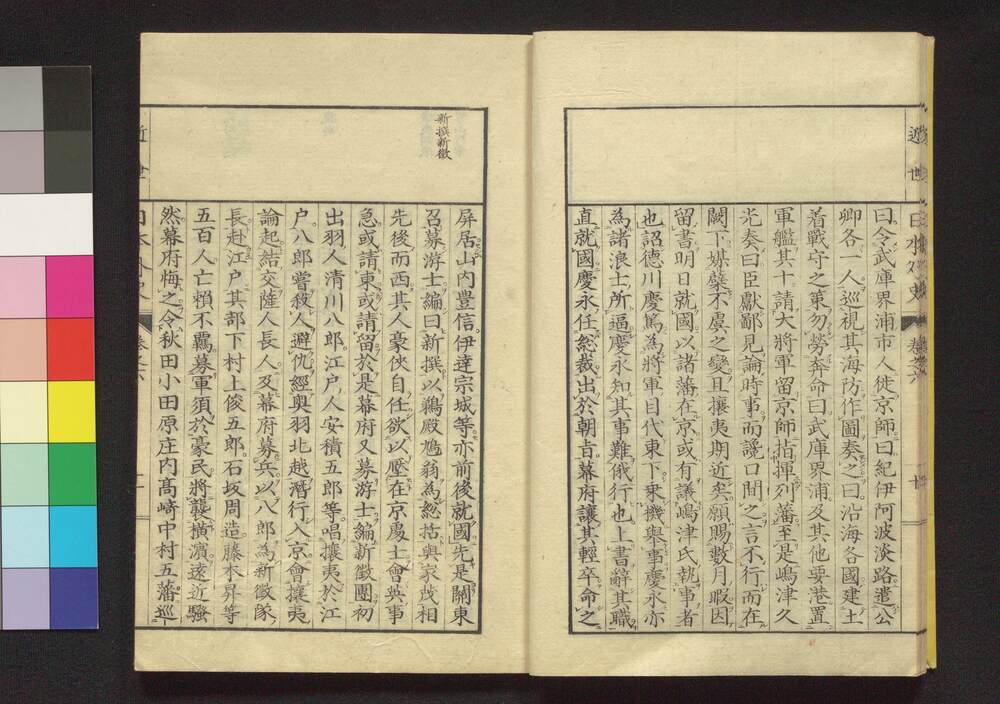 近世日本外史 卷之六 十
曰令武庫界浦市人徙京師曰紀伊阿波淡路遣公
卿各一人巡視其海防作圖奏之曰沿海各國建土
着戰守之第勿勞奔命曰武庫界浦及其他要港置
軍艦其十請大將軍留京師指揮列藩至是嶋津久
光奏曰臣獻鄙見論時事而讒口間之言不行而在
闕下媒糵不虞之變且攘夷期近矣願賜數月暇因
留書明日就國以諸藩在京或有議嶋津氏執事者
也詔德川慶篤為將軍目代東下乘機舉事慶永亦
為諸浪士所逼慶永知其事難俄行也上書辭其職
直就國慶永任総裁出於朝旨幕府讓其輕卒命之
新撰新徵
屏居山内豊信伊達宗城等亦前後就國先是關東
召募游士編曰新撰以鵜殿鳩翁為総括與家茂相
先後而西其人豪俠自任欲以壓在京處士會英事
急或請東或請留於是幕府又募游士編新徵團初
出羽人清川八郎江戸人安積五郎等唱攘夷於江
戸八郎嘗殺人避仇經奥羽北越潛行入京會攘夷
論起結交薩人長人及幕府募兵以八郎為新徵隊
長赴江戸其部下村上俊五郎石坂周造藤本昇等
五百人亡賴不羈募軍須於豪民將襲橫濱遠近騷
然幕府悔之令秋田小田原庄内髙崎中村五藩巡
近世日本外史 卷之六 十一